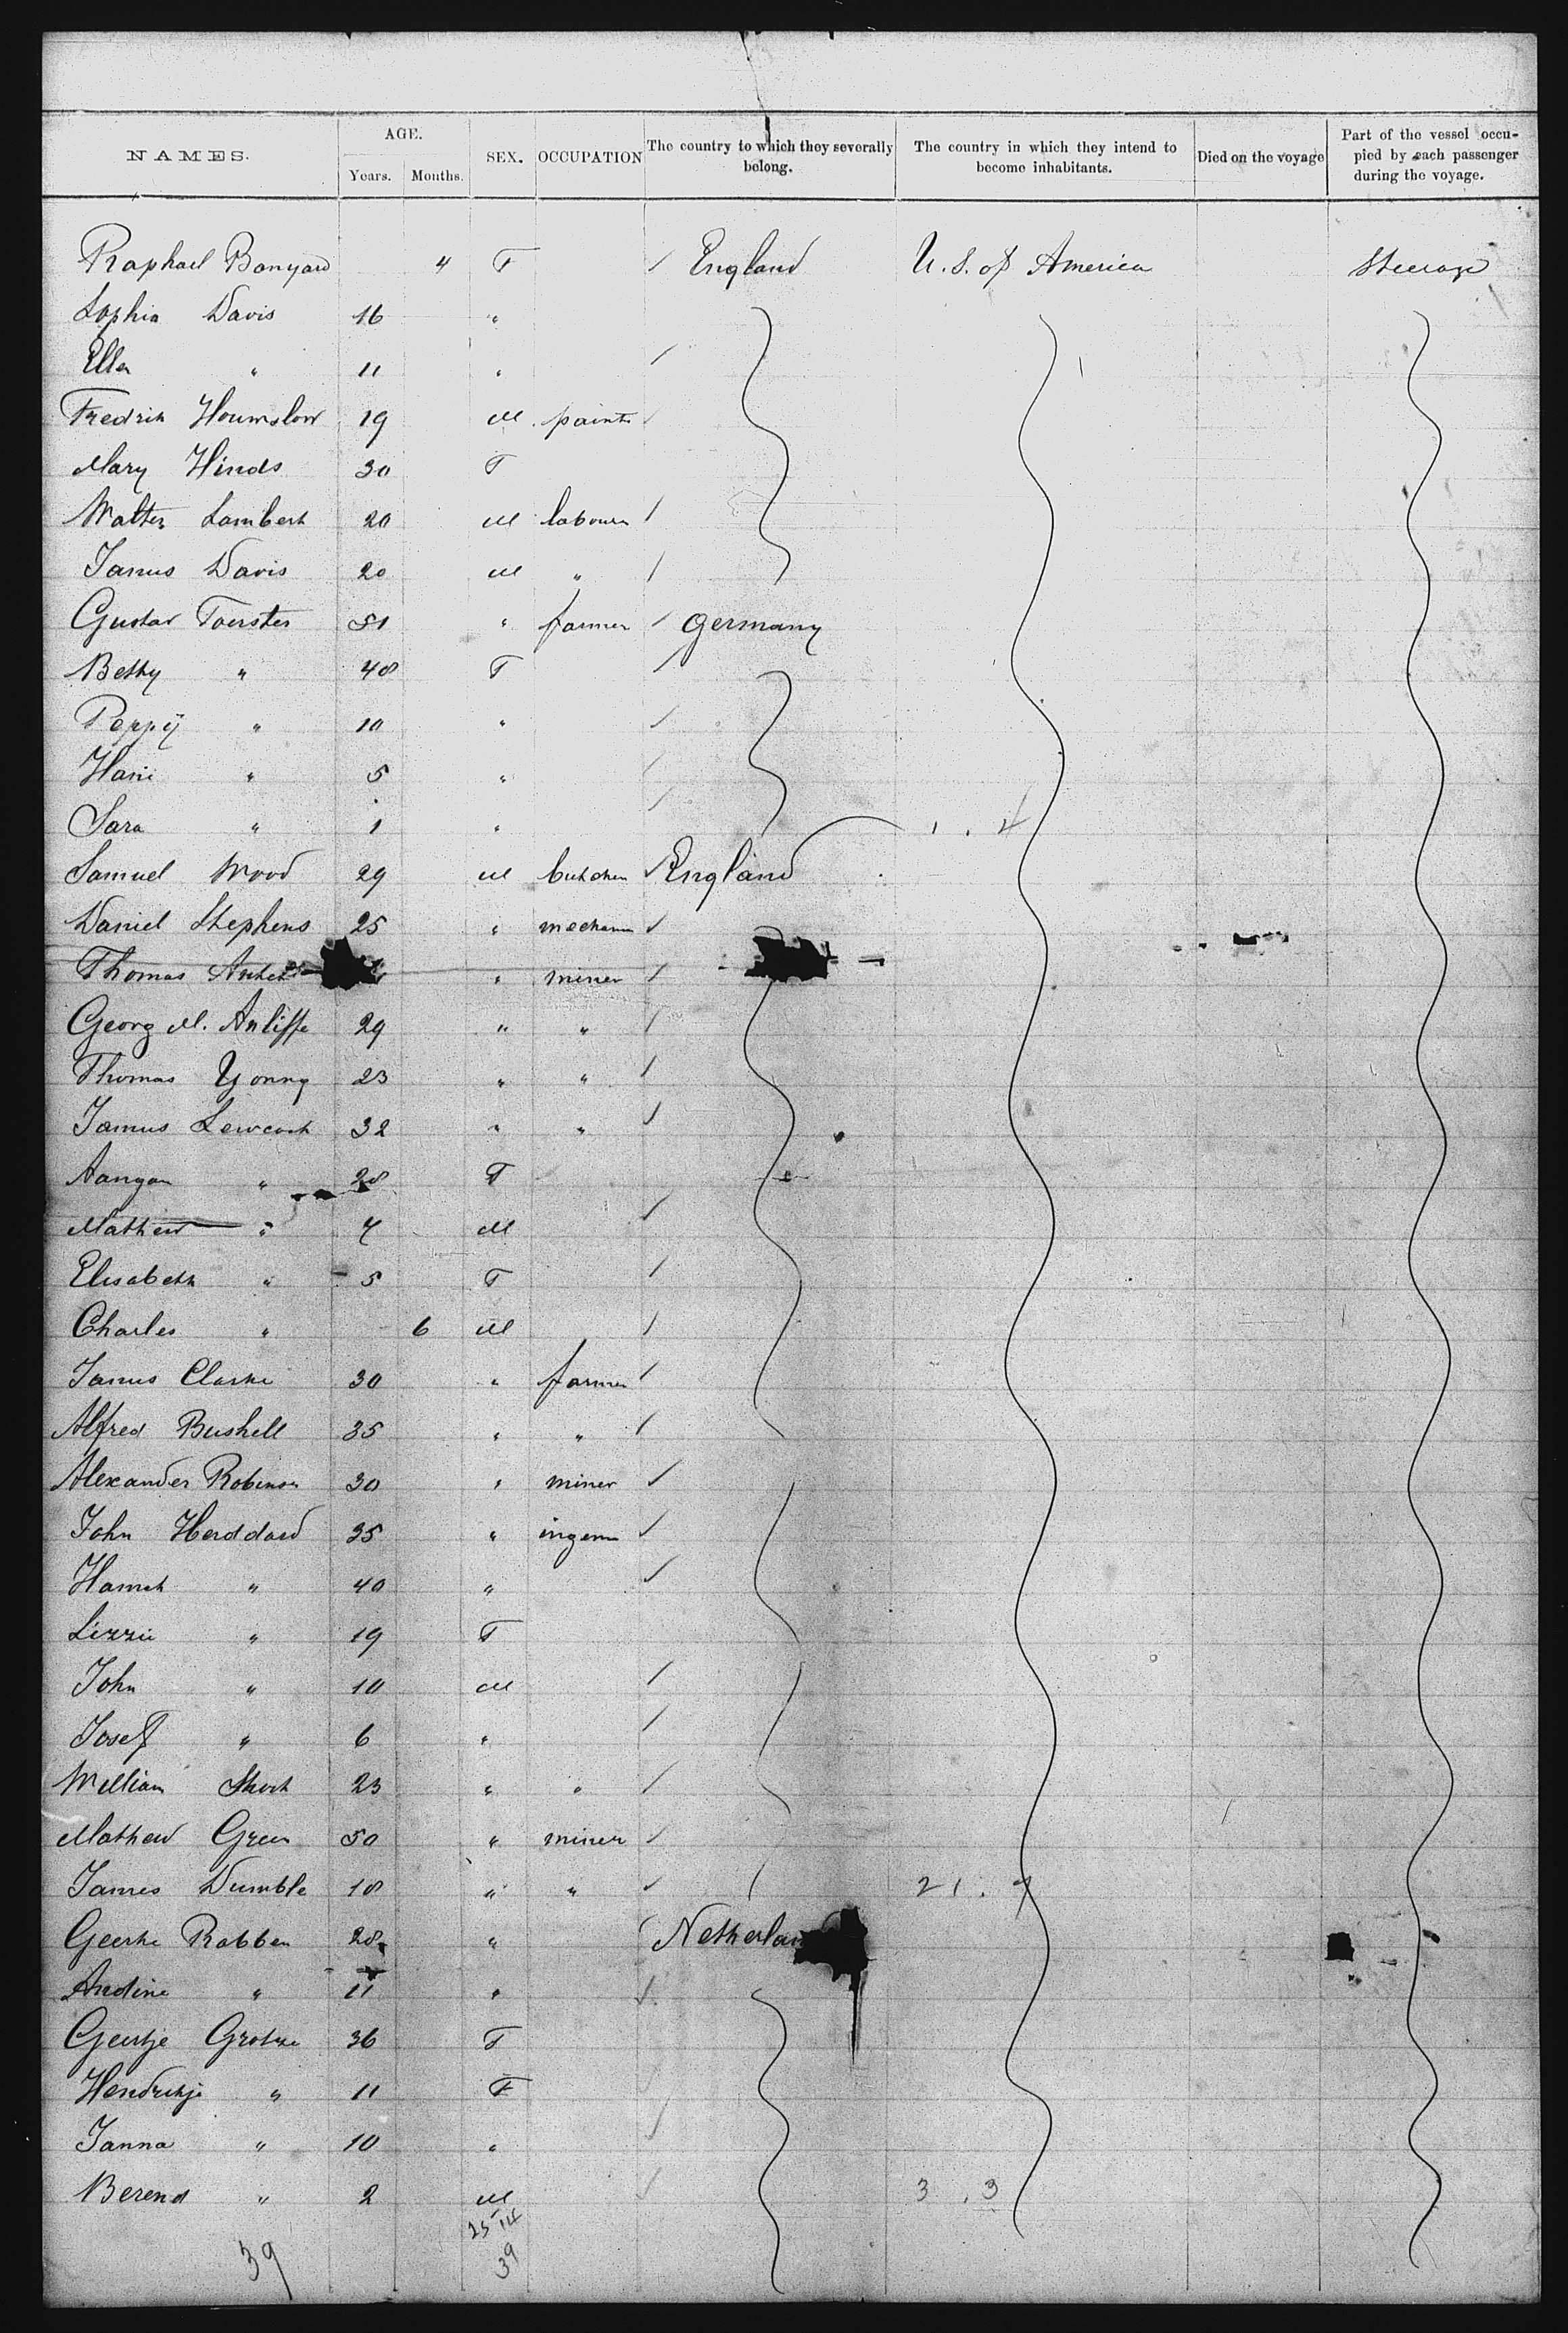 NAMES. AGE. Years. Months. SEX. OCCUPATION The country to which they severally belong. The country in which they intend to become inhabitants. Died on the voyage Part of the vessel occupied by each passenger during the voyage.
Raphael Banyard 4 F England U. S. of America Steerage
Sophia Davis 16 "
Ellen " 11 "
Fredrik Hounslow 19 M painte
Mary Hinds 30 F
Walter Lambert 20 M labourer
James Davis 20 M "
Gustav Foerster 51 " farmer Germany
Bethy " 48 F
Peppij " 10 "
Hani " 5 "
Sara " 1 " 1 . 4
Samuel Wood 29 M butcher England
Daniel Stephens 25 " mechann
Thomas " miner
Georg M. Anliffe 29 " "
Thomas Yonng 23 " "
James Lewcock 32 " "
" 28 F
Mathew " 7 M
Elisabeth " 5 F
Charles " 6 M
James Clarke 30 " farmer
Alfred Bushell 35 " "
Alexander Robinson 30 " miner
John Herddard 35 " ingenn
Hannah " 40 "
Lizzie " 19 F
John " 10 M
Josef " 6 "
William Short 23 " "
Mathew Green 50 " miner
James Dumble 18 " " 21 . 7
Geerke Robben 28 " Netherlan
Andine " 11 "
Geertje Grotke 36 F
Hendrikje " 11 F
Janna " 10 "
Berend " 2 M 3 . 3
25 14
39 39